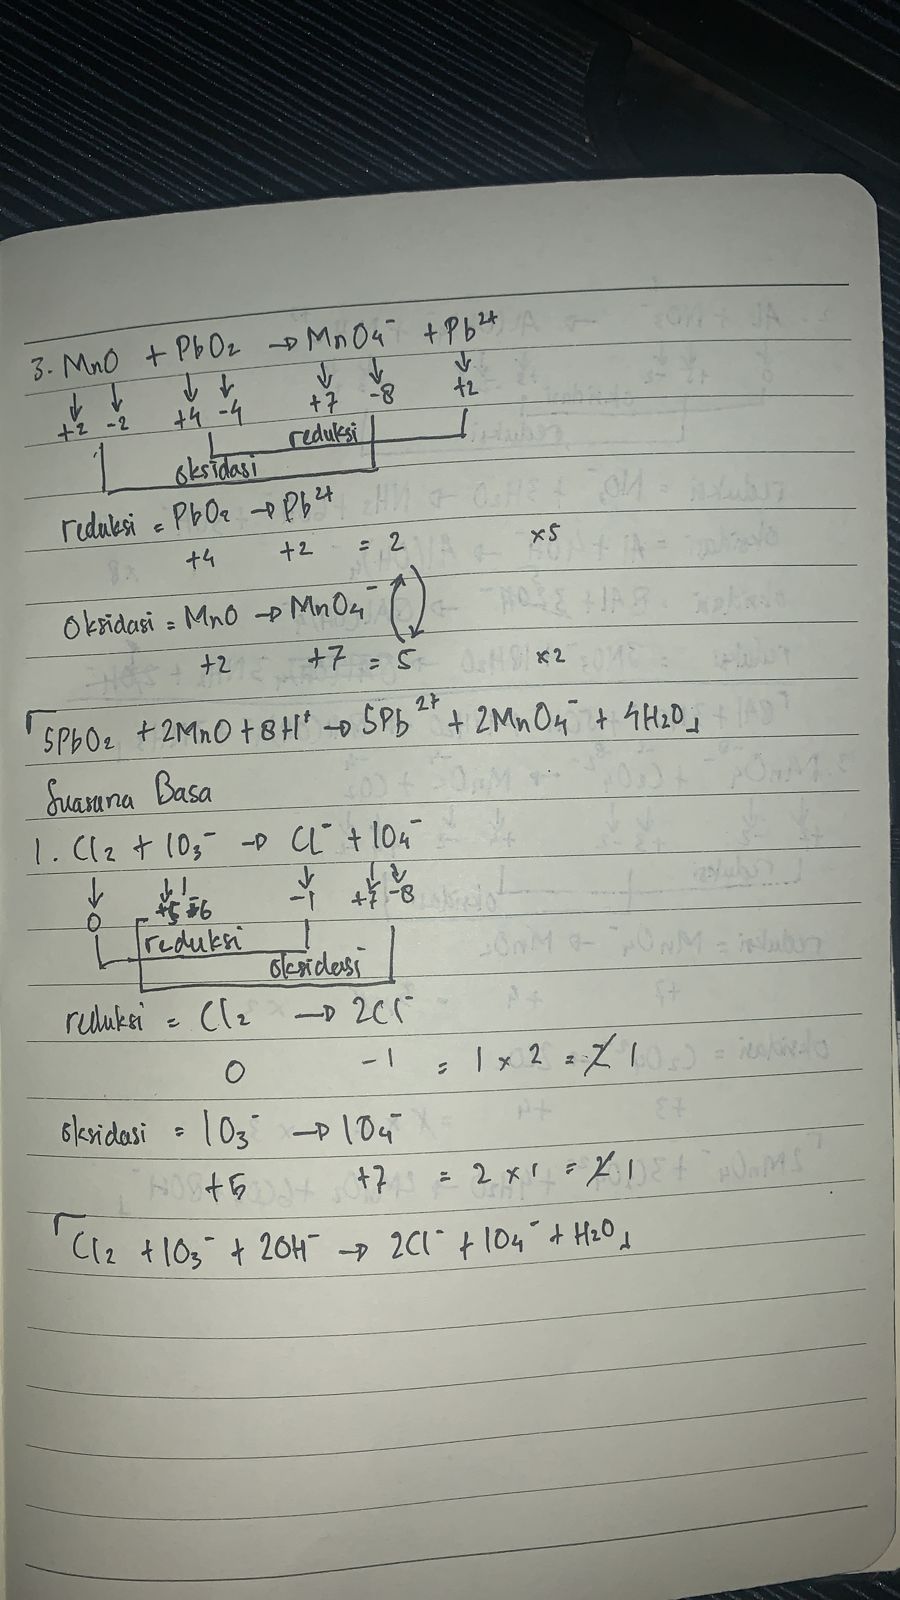 3. MnO + PbO₂ → MnO₄⁻ + Pb²⁺
+2 -2 +4 -4 +7 -8 +2
reduksi
oksidasi
reduksi = PbO₂ → Pb²⁺
+4 +2 = 2 ×5
Oksidasi = MnO → MnO₄⁻
+2 +7 = 5 ×2
5PbO₂ + 2MnO + 8H⁺ → 5Pb²⁺ + 2MnO₄⁻ + 4H₂O
Suasana Basa
1. Cl₂ + IO₃⁻ → Cl⁻ + IO₄⁻
0 +5 -6 -1 +7 -8
reduksi
oksidasi
reduksi = Cl₂ → 2Cl⁻
0 -1 = 1 × 2 = 2 1
oksidasi = IO₃⁻ → IO₄⁻
+5 +7 = 2 × 1 = 2 1
Cl₂ + IO₃⁻ + 2OH⁻ → 2Cl⁻ + IO₄⁻ + H₂O